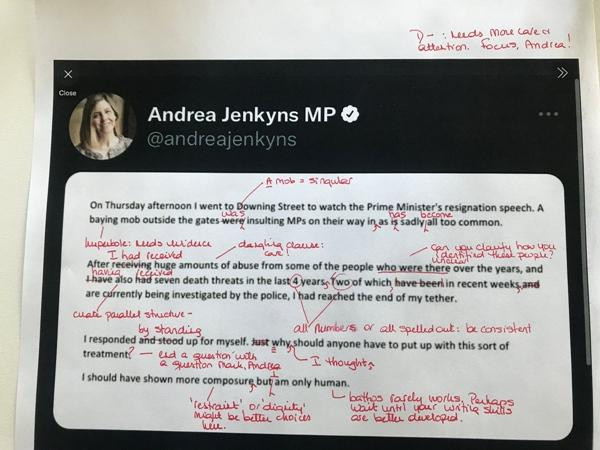 D- : Needs more care &
attention. Focus, Andrea!
Close
Andrea Jenkyns MP
@andreajenkyns
A mob = singular
On Thursday afternoon I went to Downing Street to watch the Prime Minister's resignation speech. A
was
has become
baying mob outside the gates were insulting MPs on their way in as is sadly all too common.
Hyperbole: needs evidence
dangling clause:
care!
can you clarify how you
identified these people?
unclear!
I had received
After receiving huge amounts of abuse from some of the people who were there over the years, and
having received
I have also had seven death threats in the last 4 years. Two of which have been in recent weeks and
are currently being investigated by the police, I had reached the end of my tether.
create parallel structure -
all numbers or all spelled out: be consistent
by standing
I responded and stood up for myself. Just why should anyone have to put up with this sort of
treatment?
- end a question with
a question mark, Andrea
I thought,
I
I should have shown more composure but am only human.
'restraint' or 'dignity'
might be better choices
here.
bathos rarely works. Perhaps
wait until your writing skills
are better developed.